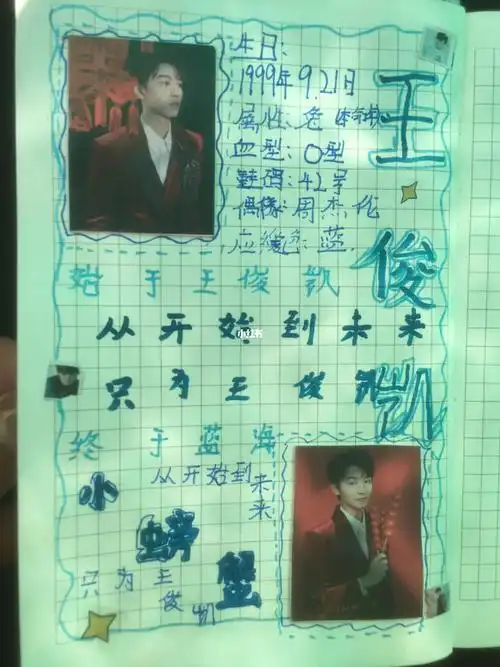 生日:
1999年9.21日
属性:兔
血型:O型
鞋码:42号
偶像:周杰伦
应援色:蓝.
王俊凯
始于王俊凯
从开始到未来
只为王俊凯
终于蓝海
从开始到未来
小螃蟹
只为王俊凯
小红书